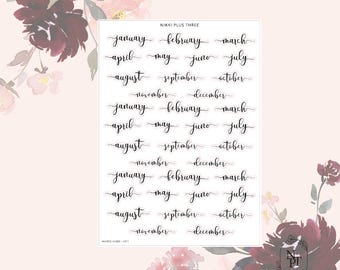 NIKKI PLUS THREE
january february march
april may june july
august september october
november december
january february march
april may june july
august september october
november december
january february march
april may june july
august september october
november december